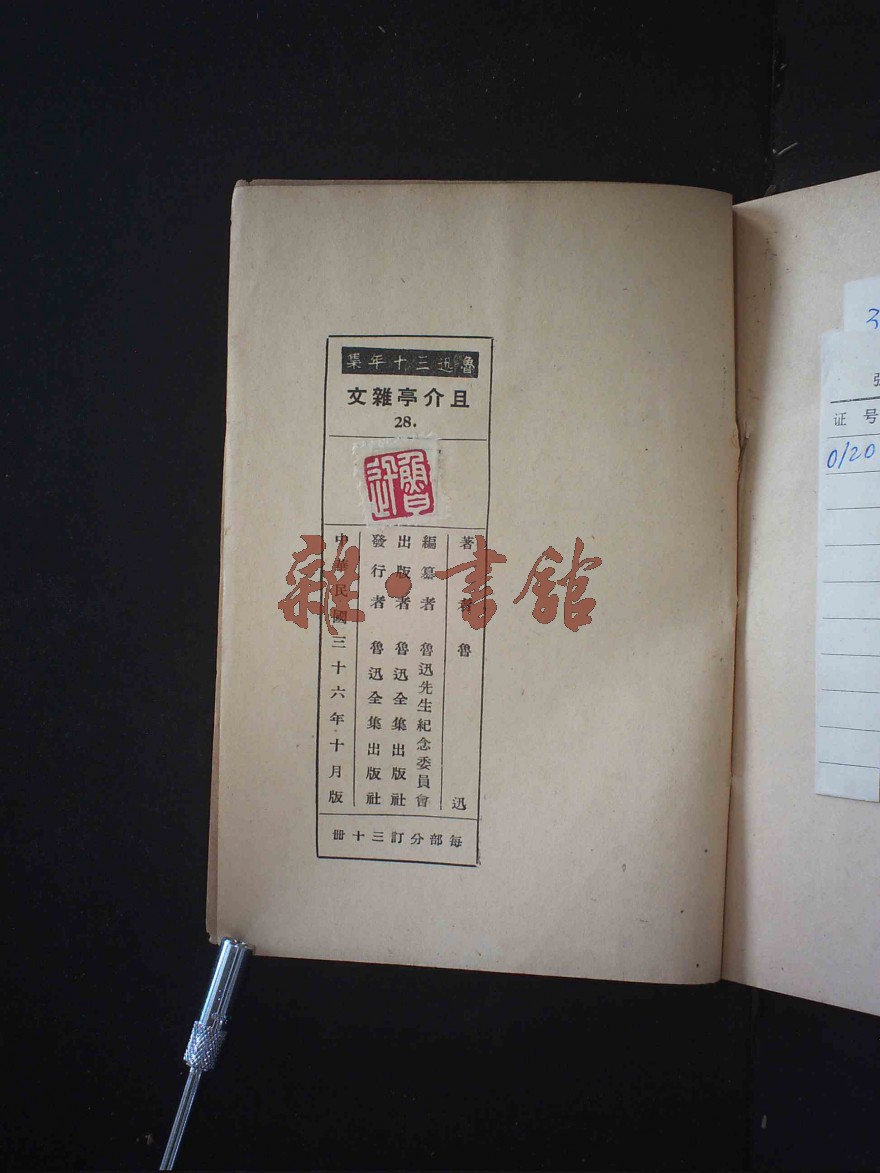 魯迅三十年集
且介亭雜文
28.
魯迅
著者 魯迅
編纂者 魯迅先生紀念委員會
出版者 魯迅全集出版社
發行者 魯迅全集出版社
中華民國三十六年十月版
每部分訂三十冊
雜·書館
3
证号
0/20